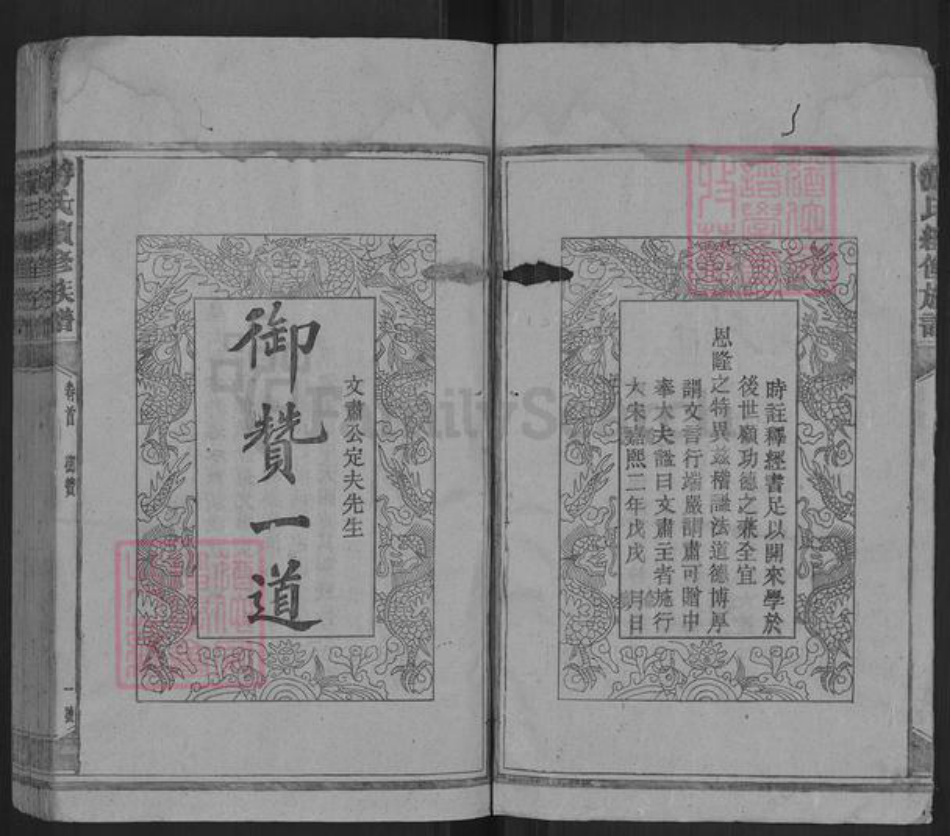 時註釋經書足以開來學於
後世願功德之兼全宜
恩隆之特異茲稽諡法道德博厚
謂文言行端嚴謂肅可贈中
奉大夫諡曰文肅主者施行
大宋嘉熙二年戊戌 月 日
文肅公定夫先生
御贊一道
游氏續修族譜
卷首 御贊
一號